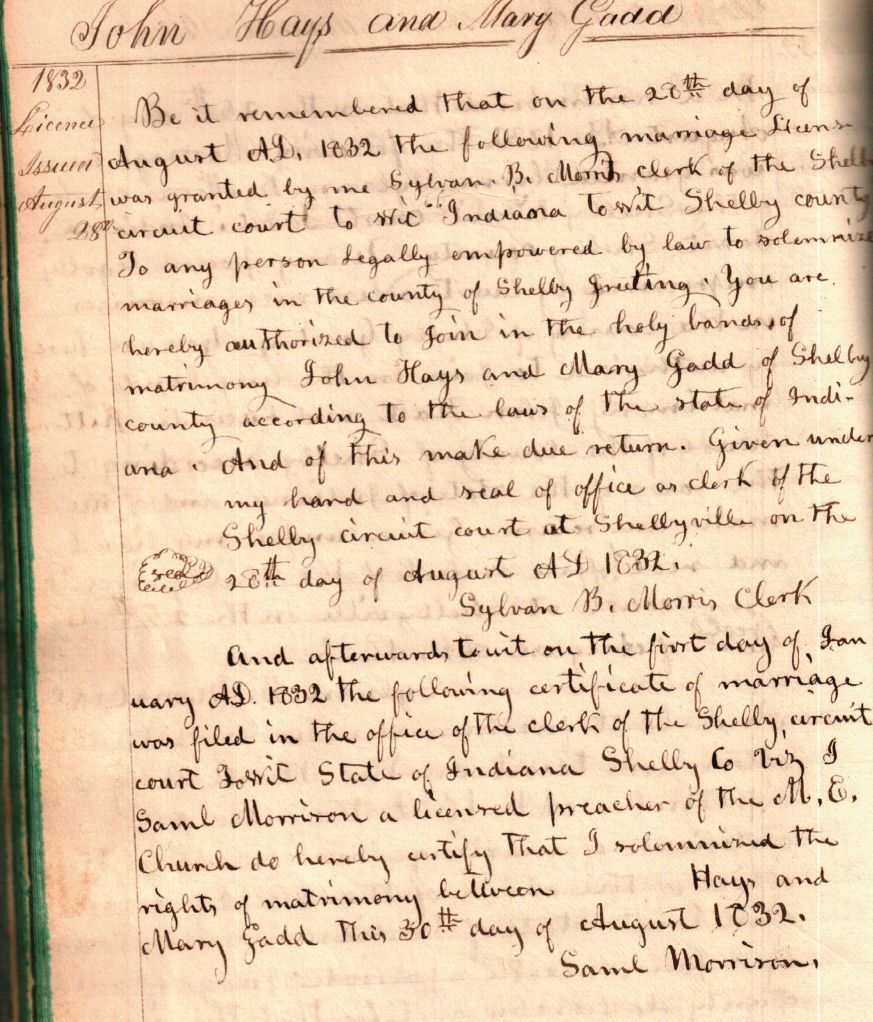 John Hays and Mary Gadd
1832
Licence
Issued
August
28th
Be it remembered that on the 28th day of
August AD. 1832 the following marriage License
was granted by me Sylvan B. Morris clerk of the Shelby
circuit court to wit "Indiana towit Shelby county
To any person Legally empowered by law to solemnize
marriages in the county of Shelby Greeting. You are
hereby authorized to Join in the holy bands of
matrimony John Hays and Mary Gadd of Shelby
county according to the laws of the state of Indi-
ana. And of this make due return. Given under
my hand and seal of office as clerk of the
Shelby circuit court at Shelbyville on the
seal
28th day of August AD 1832.
Sylvan B. Morris Clerk
And afterwards towit on the first day of Jan
uary AD. 1832 the following certificate of marriage
was filed in the office of the clerk of the Shelby circuit
court Towit State of Indiana Shelby Co Viz I
Saml Morrison a licensed preacher of the M. E.
Church do hereby certify that I solemnized the
rights of matrimony between Hays and
Mary Gadd this 30th day of August 1832.
Saml Morrison.